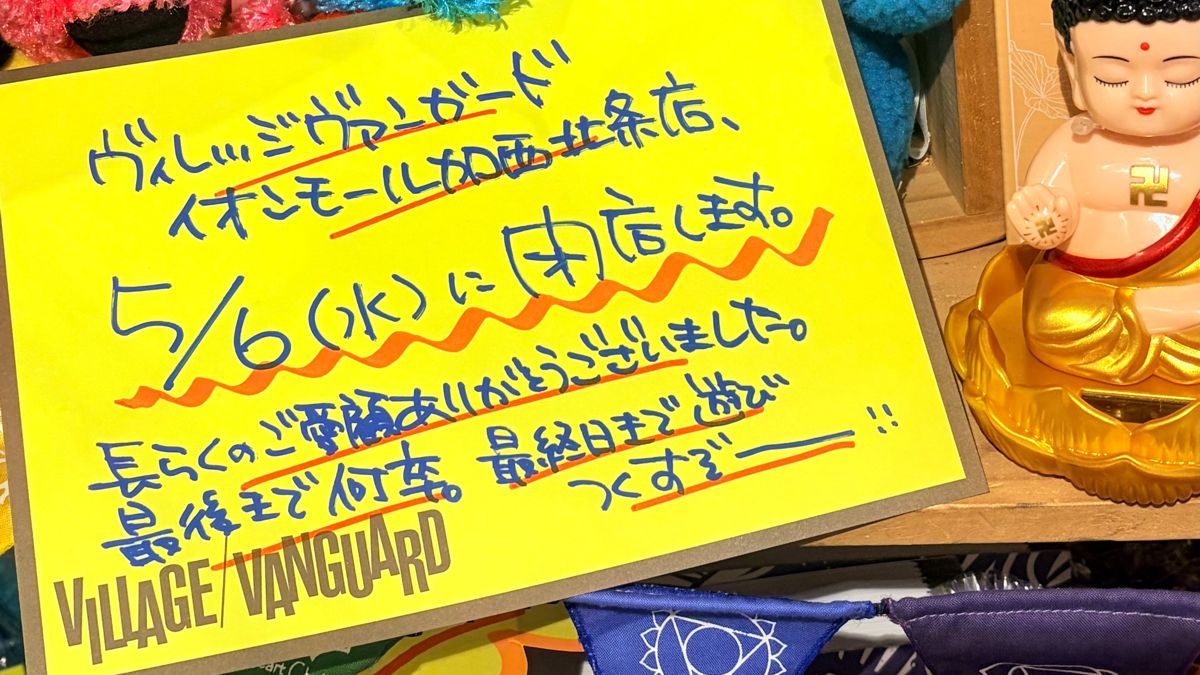 ヴィレッジヴァンガード
イオンモール加西北条店、
5/6(水)に閉店します。
長らくのご愛顧ありがとうございました。
最後まで何卒。最終日まで遊び
つくすぞー!!
VILLAGE/VANGUARD